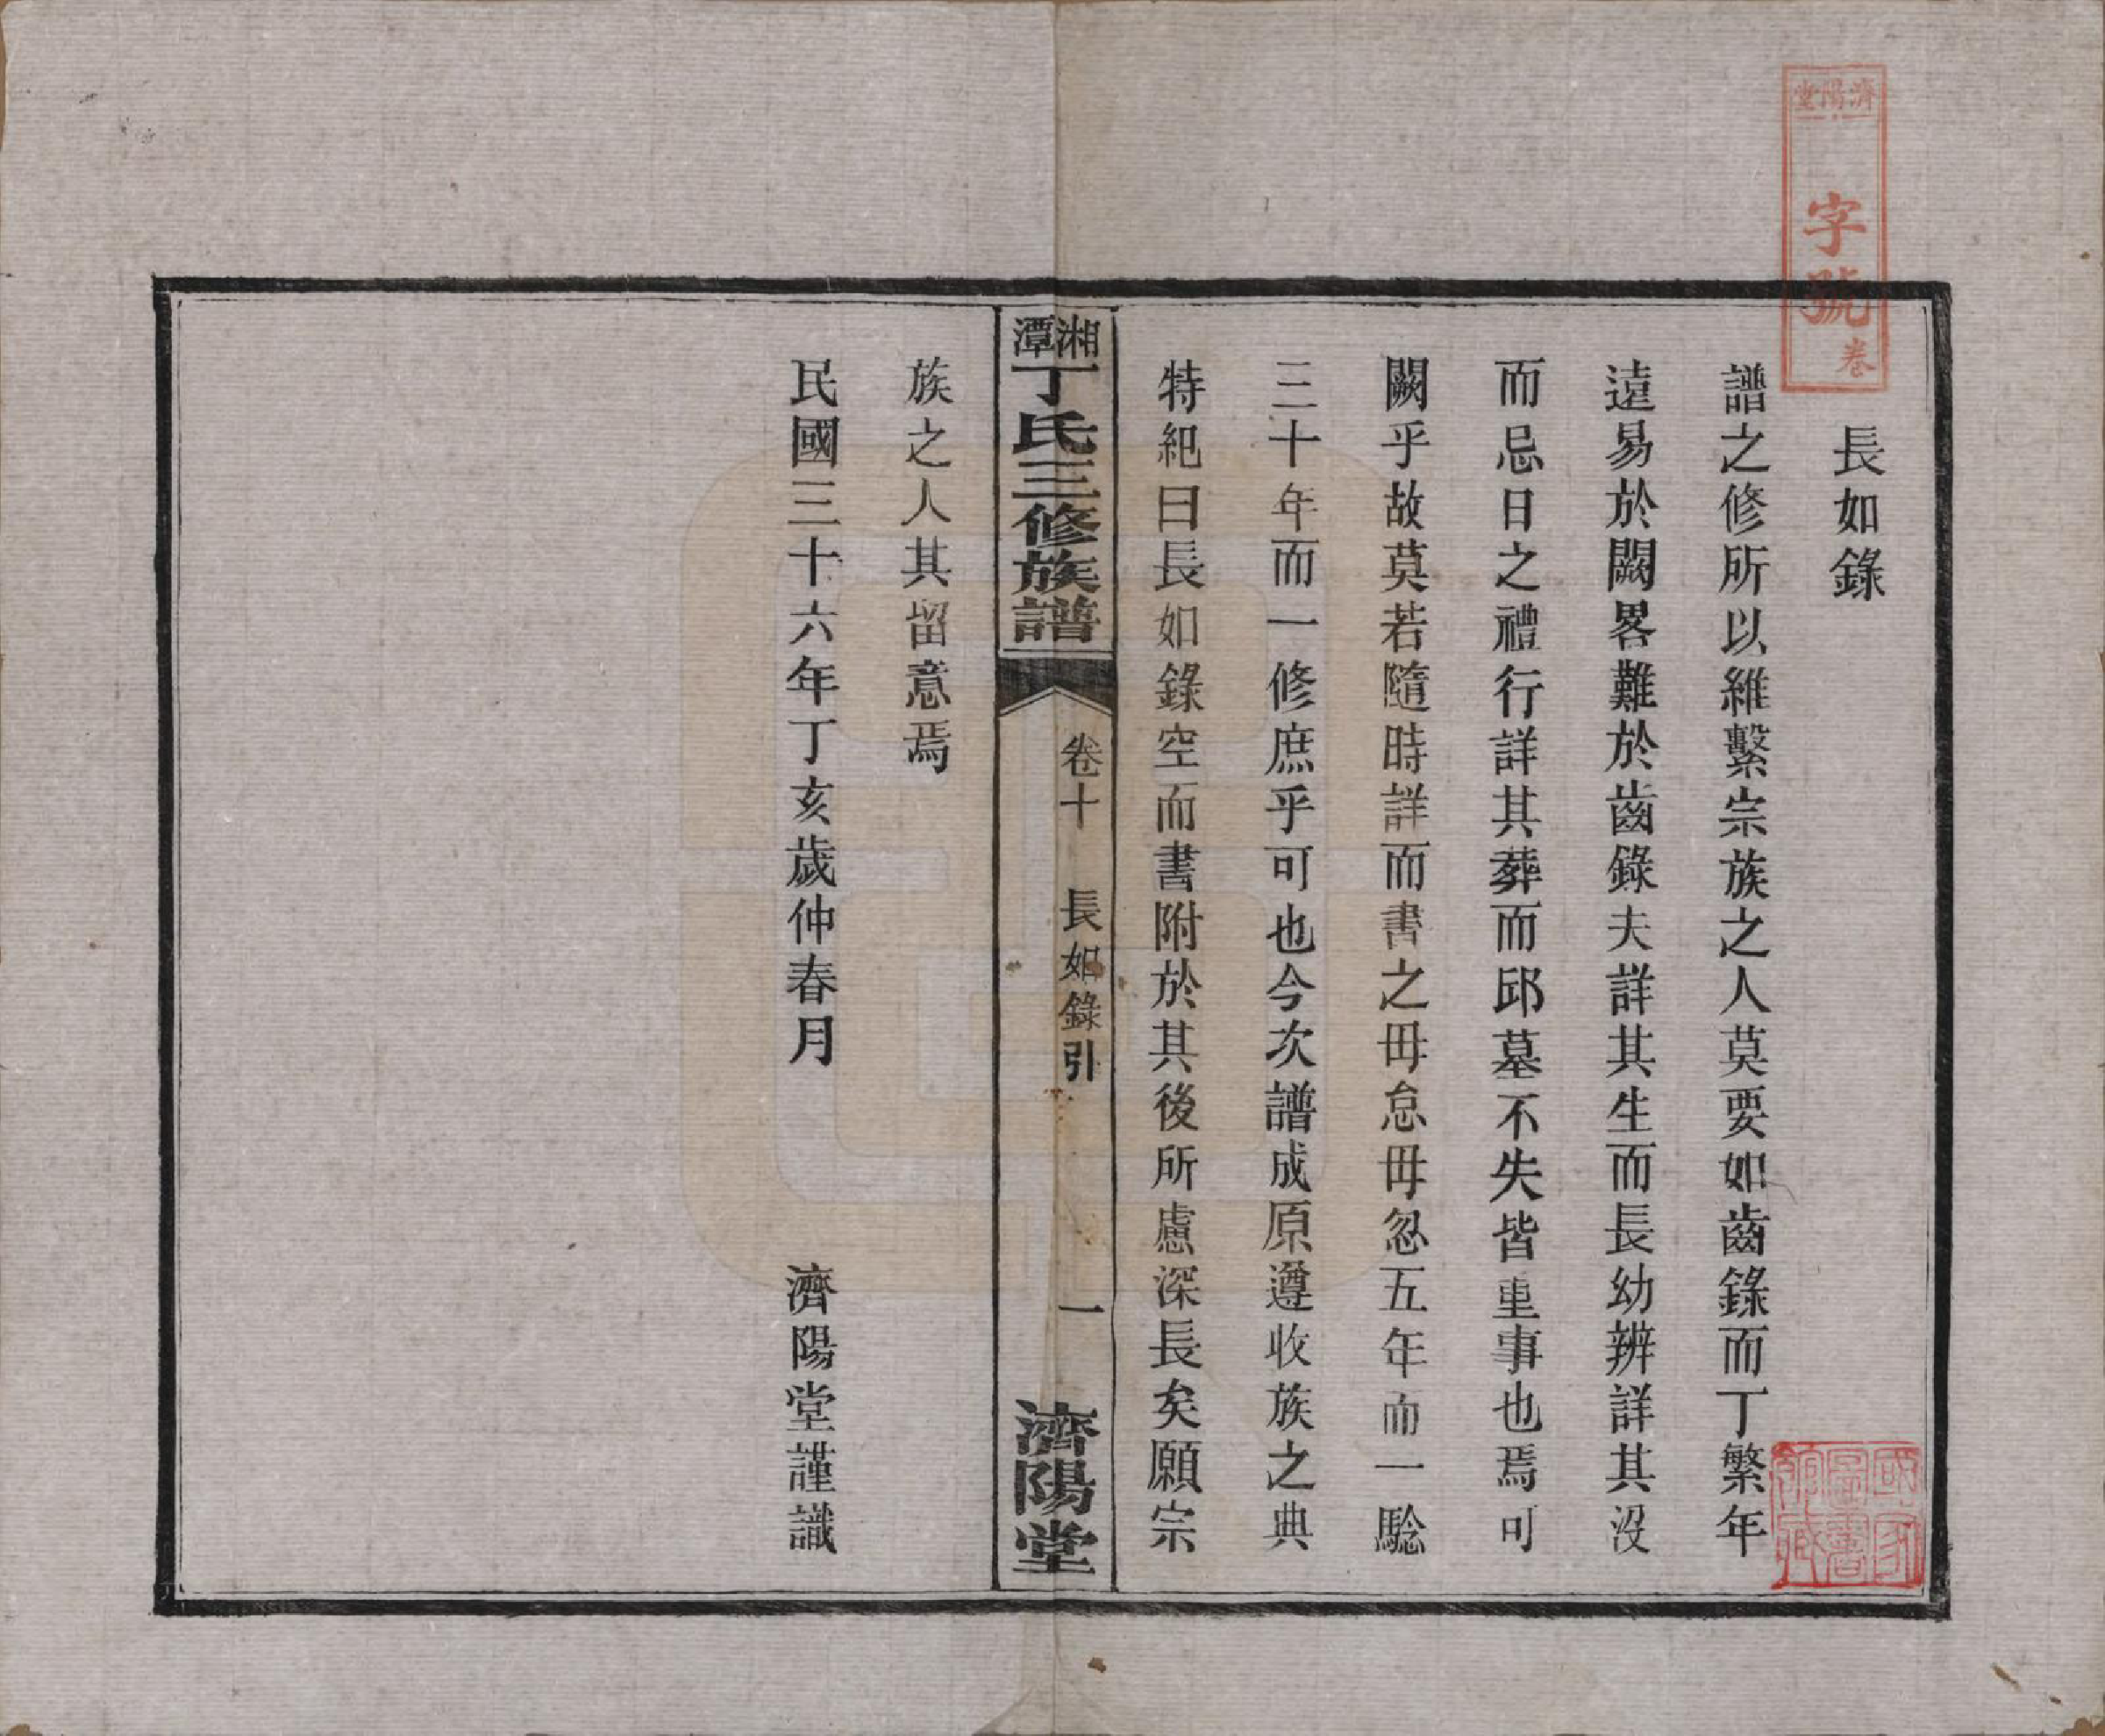 濟陽堂
字號
卷
長如錄
譜之修所以維繫宗族之人莫要如齒錄而丁繁年
遠易於闕畧難於齒錄夫詳其生而長幼辨詳其沒
而忌日之禮行詳其葬而邱墓不失皆重事也焉可
闕乎故莫若隨時詳而書之毋怠毋忽五年而一騐
三十年而一修庶乎可也今次譜成原遵收族之典
特紀曰長如錄空而書附於其後所慮深長矣願宗
湘潭丁氏三修族譜
卷十 長如錄引
一
濟陽堂
族之人其留意焉
民國三十六年丁亥歲仲春月 濟陽堂謹識
國家圖書館藏